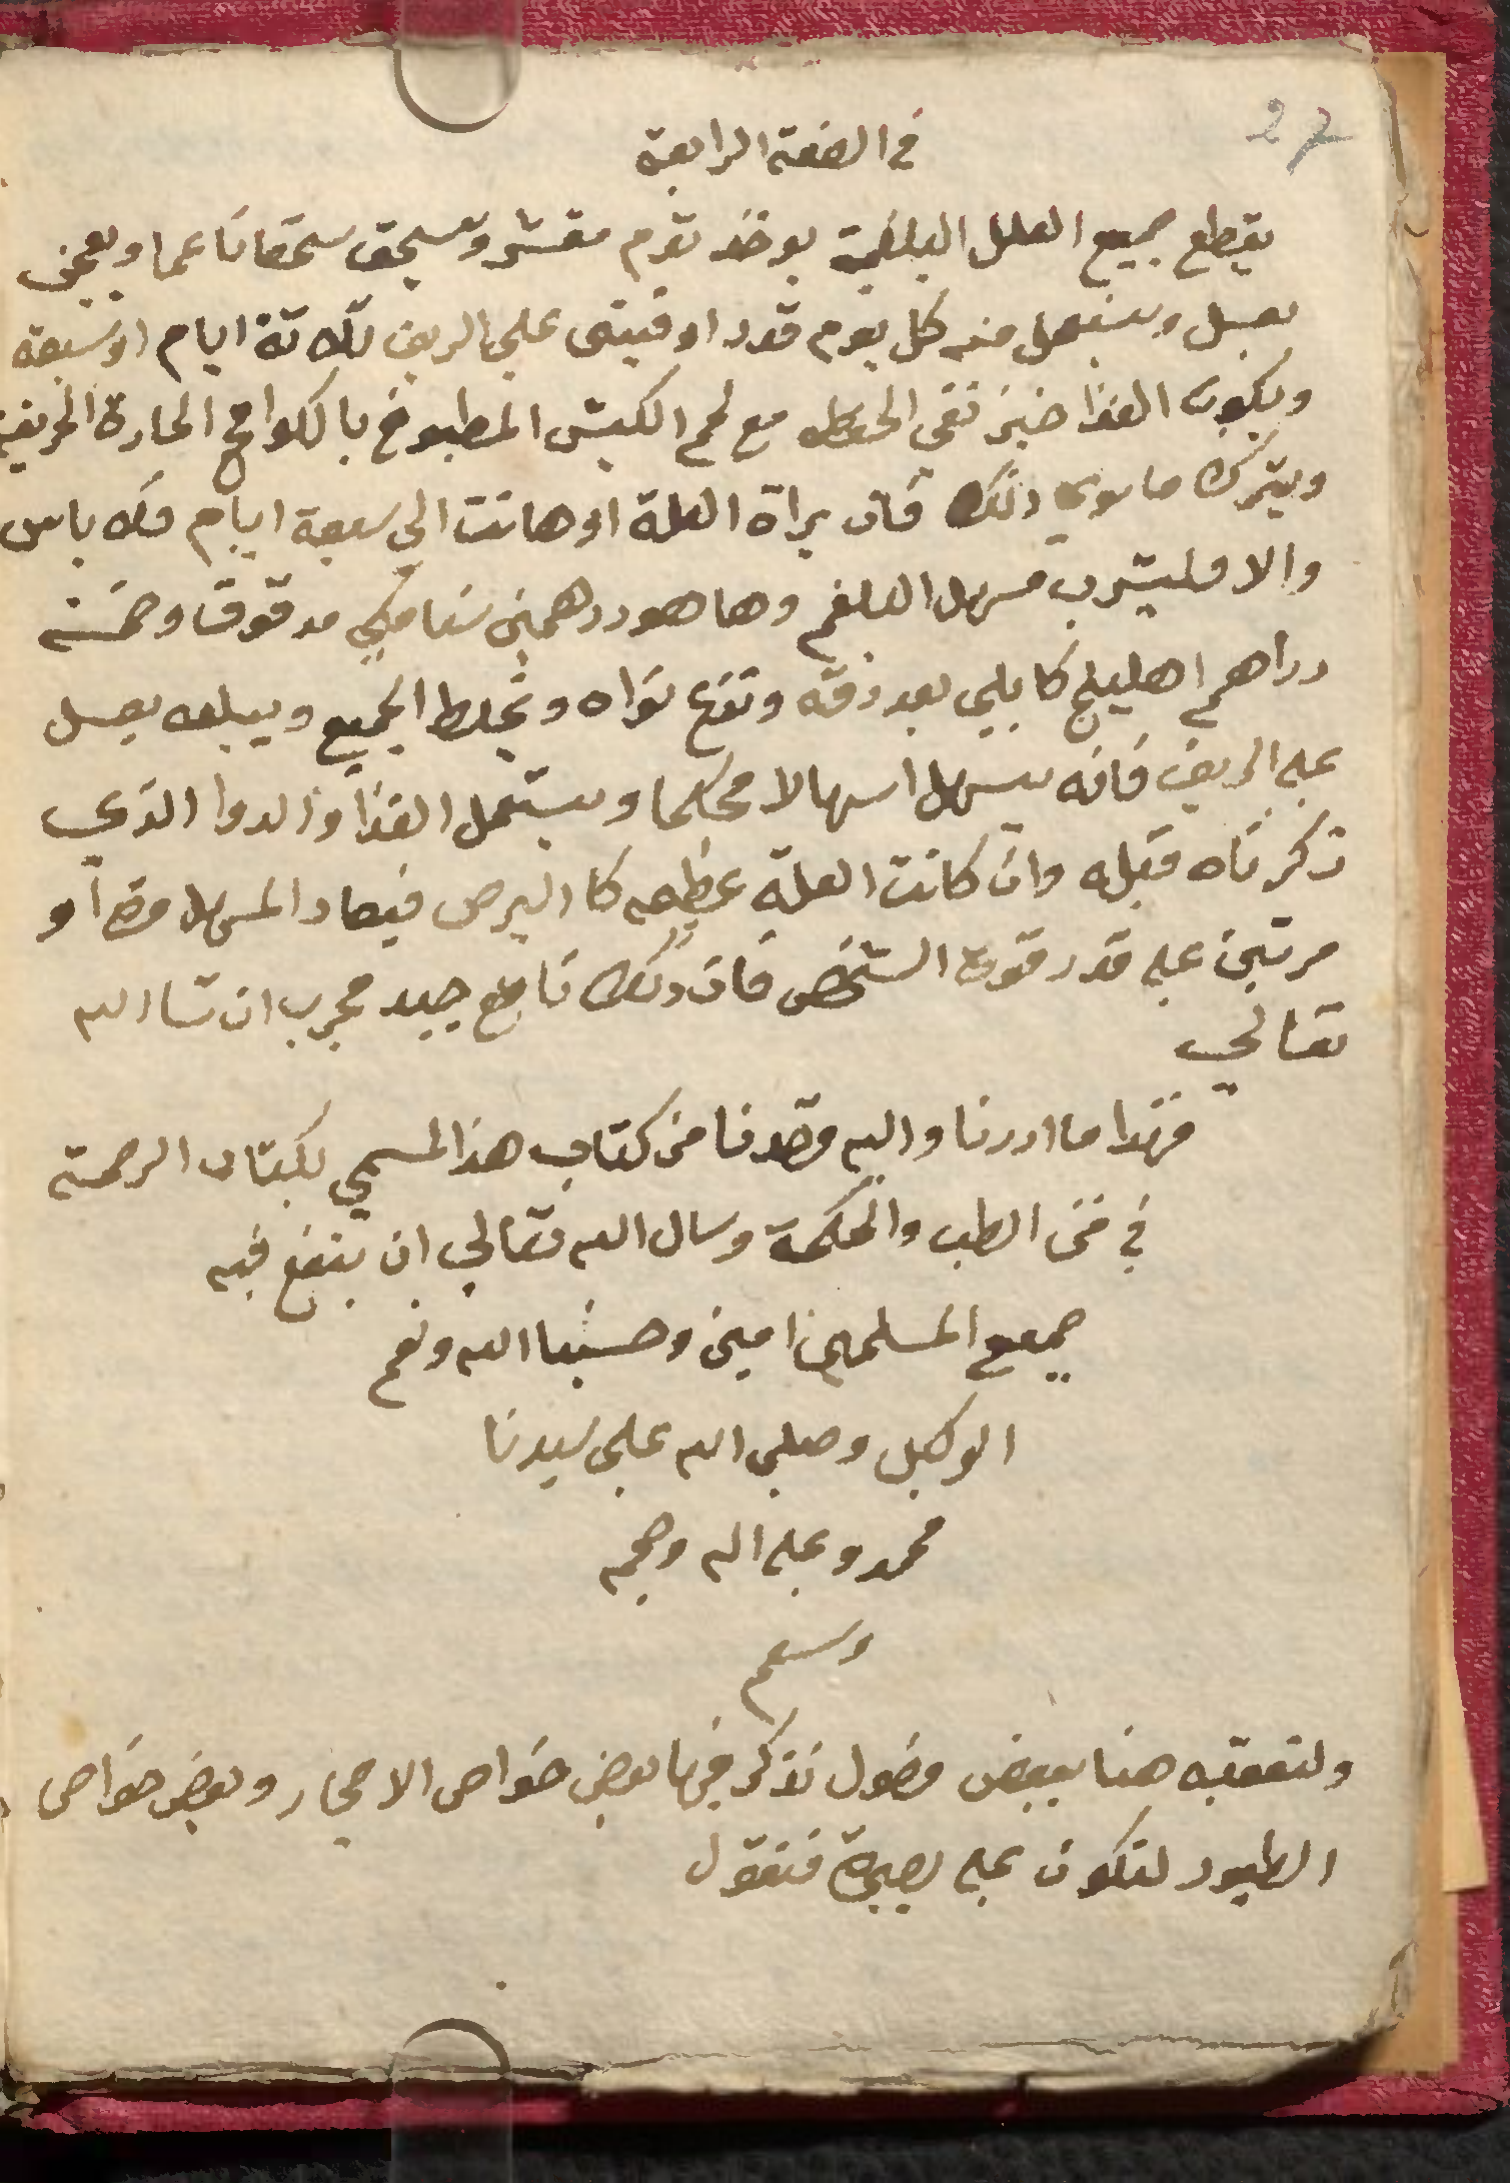 27
في الصفة الرابعة
يقطع جميع العلل البلغمية يوخذ توم مقشر ويسحق سحقا ناعما ويعجن
بعسل ويستعمل منه كل يوم قدر اوقيتين على الريق تلاتة ايام او سبعة
ويكون الغذا خبز نقي الحنطه مع لحم الكبش المطبوخ بالكوامح الحارة الحريفية
ويترك ما سوي ذلك فان براة العلة او هانت الي سبعة ايام فلا باس
والا فليشرب مسهل البلغم وها هو درهمين سنا مكي مدقوقا وخمسة
دراهم اهليلج كابلي بعد دقه ونزع نواه ويخلط الجميع ويبلعه بعسل
علي الريق فانه يسهل اسهالا محكما ويستعمل الغذا والدوا الذي
ذكرناه قبله وان كانت العلة عظيمه كا البرص فيعاد المسهل مرة او
مرتين علي قدر قوة الشخص فان ذلك نافع جيد مجرب ان شا الله
تعالي
فهذا ما اردنا واليه قصدنا من كتاب هذا المسمي بكتاب الرحمة
في فن الطب والحكمة وسال الله تعالي ان ينفع فيه
جميع المسلمين امين وحسبنا الله ونعم
الوكيل وصلي الله على سيدنا
محمد وعلي اله وصحبه
وسلم
ولنعقبه هنا ببعض فصول نذكر فيها بعض خواص الاحجار وبعض خواص
الطيور لنكون علي بصيرة فنقول